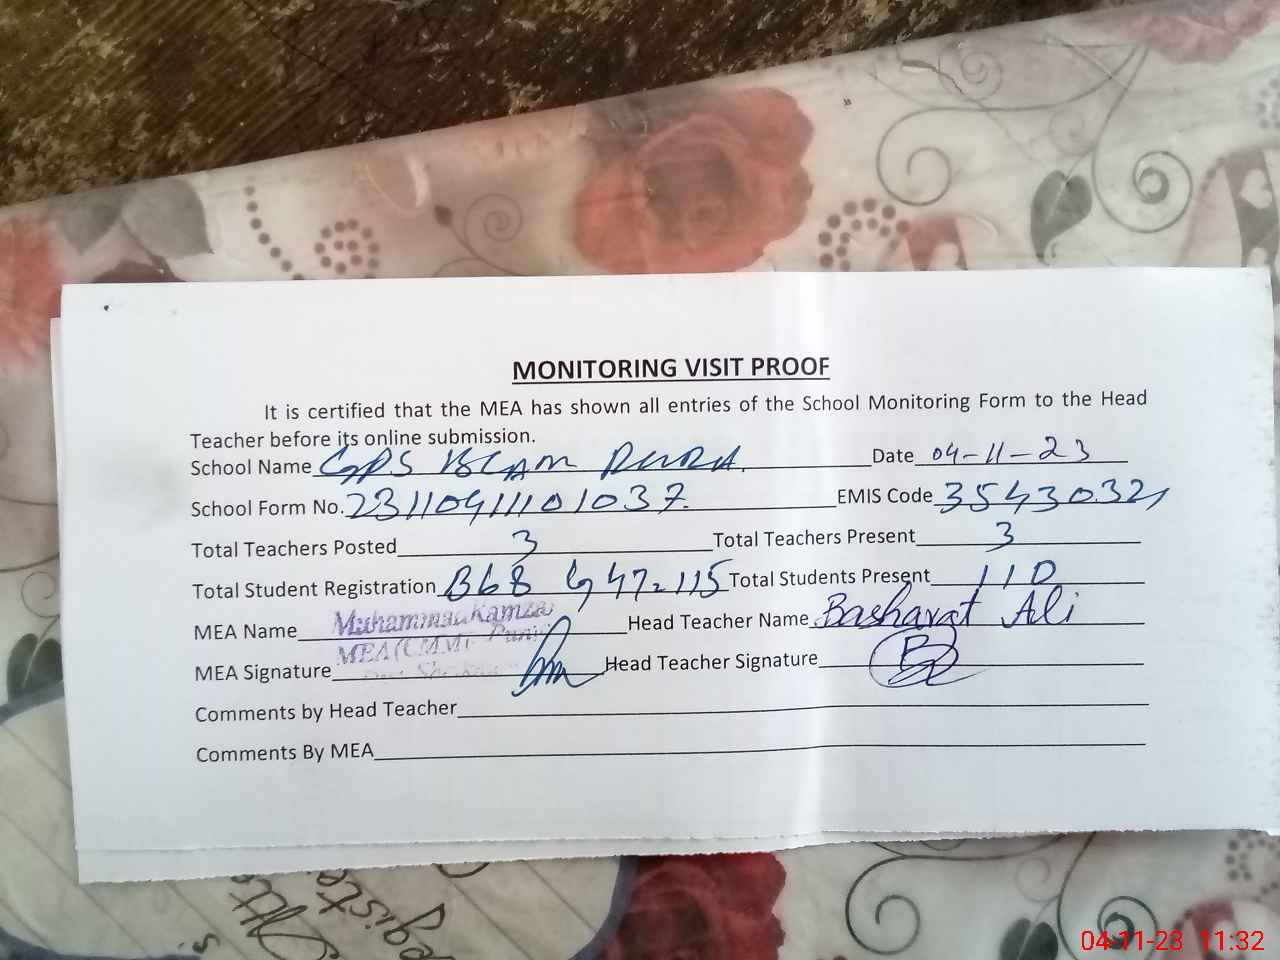 MONITORING VISIT PROOF
It is certified that the MEA has shown all entries of the School Monitoring Form to the Head
Teacher before its online submission.
School Name GPS ISLAM PURA. Date 04-11-23
School Form No. 23110411101037. EMIS Code 35430321
Total Teachers Posted 3 Total Teachers Present 3
Total Student Registration B68 G47=115 Total Students Present 110
MEA Name Muhammad Head Teacher Name Basharat Ali
MEA Signature MEA Head Teacher Signature
Comments by Head Teacher
Comments By MEA
04-11-23 11:32